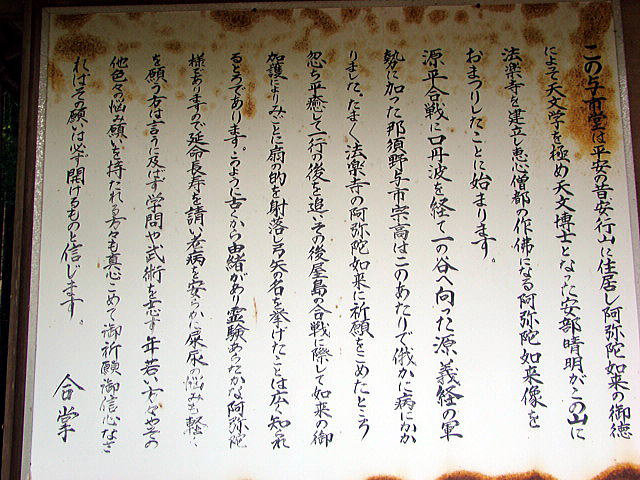 この与市堂は平安の昔安行山に住居し阿弥陀如来の御徳
によって天文学を極め天文博士となった安部晴明がこの山に
法楽寺を建立し恵心僧都の作佛になる阿弥陀如来像を
おまつりしたことに始まります。
源平合戦に口丹波を経て一の谷へ向った源義経の軍
勢に加った那須野与市宗高はこのあたりで俄かに病にかか
りました、たまたま法楽寺の阿弥陀如来に祈願をこめたところ
忽ち平癒して一行の後を追いその後屋島の合戦に際して如来の御
加護によりみごとに扇の的を射落し弓矢の名を挙げたことは広く知れ
るところであります。このように古くから由緒があり霊験あらたかな阿弥陀
様でありますので延命長寿を請い老病を安らかに屎尿の悩みも軽く
を願う方は言うに及ばず学問や武術を志す年若い方々やその
他色々の悩み願いを持たれる方々も真心こめて御祈願御信心なさ
ればその願いは必ず開けるものと信じます。
合掌